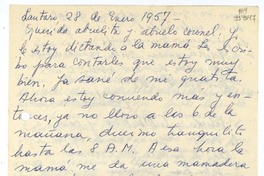 Lautaro, 28 de Enero 1957 –
Querida abuelita y abuelo coronel, yo
le estoy dictando a la mamá
para contarles que estoy muy
bien, ya sané de mi guatita.
Ahora estoy comiendo más y en-
tonces, ya no lloro a las 6 de la
mañana, duermo tranquilito
hasta las 8 A.M. A esa hora la
mamá me da una mamadera